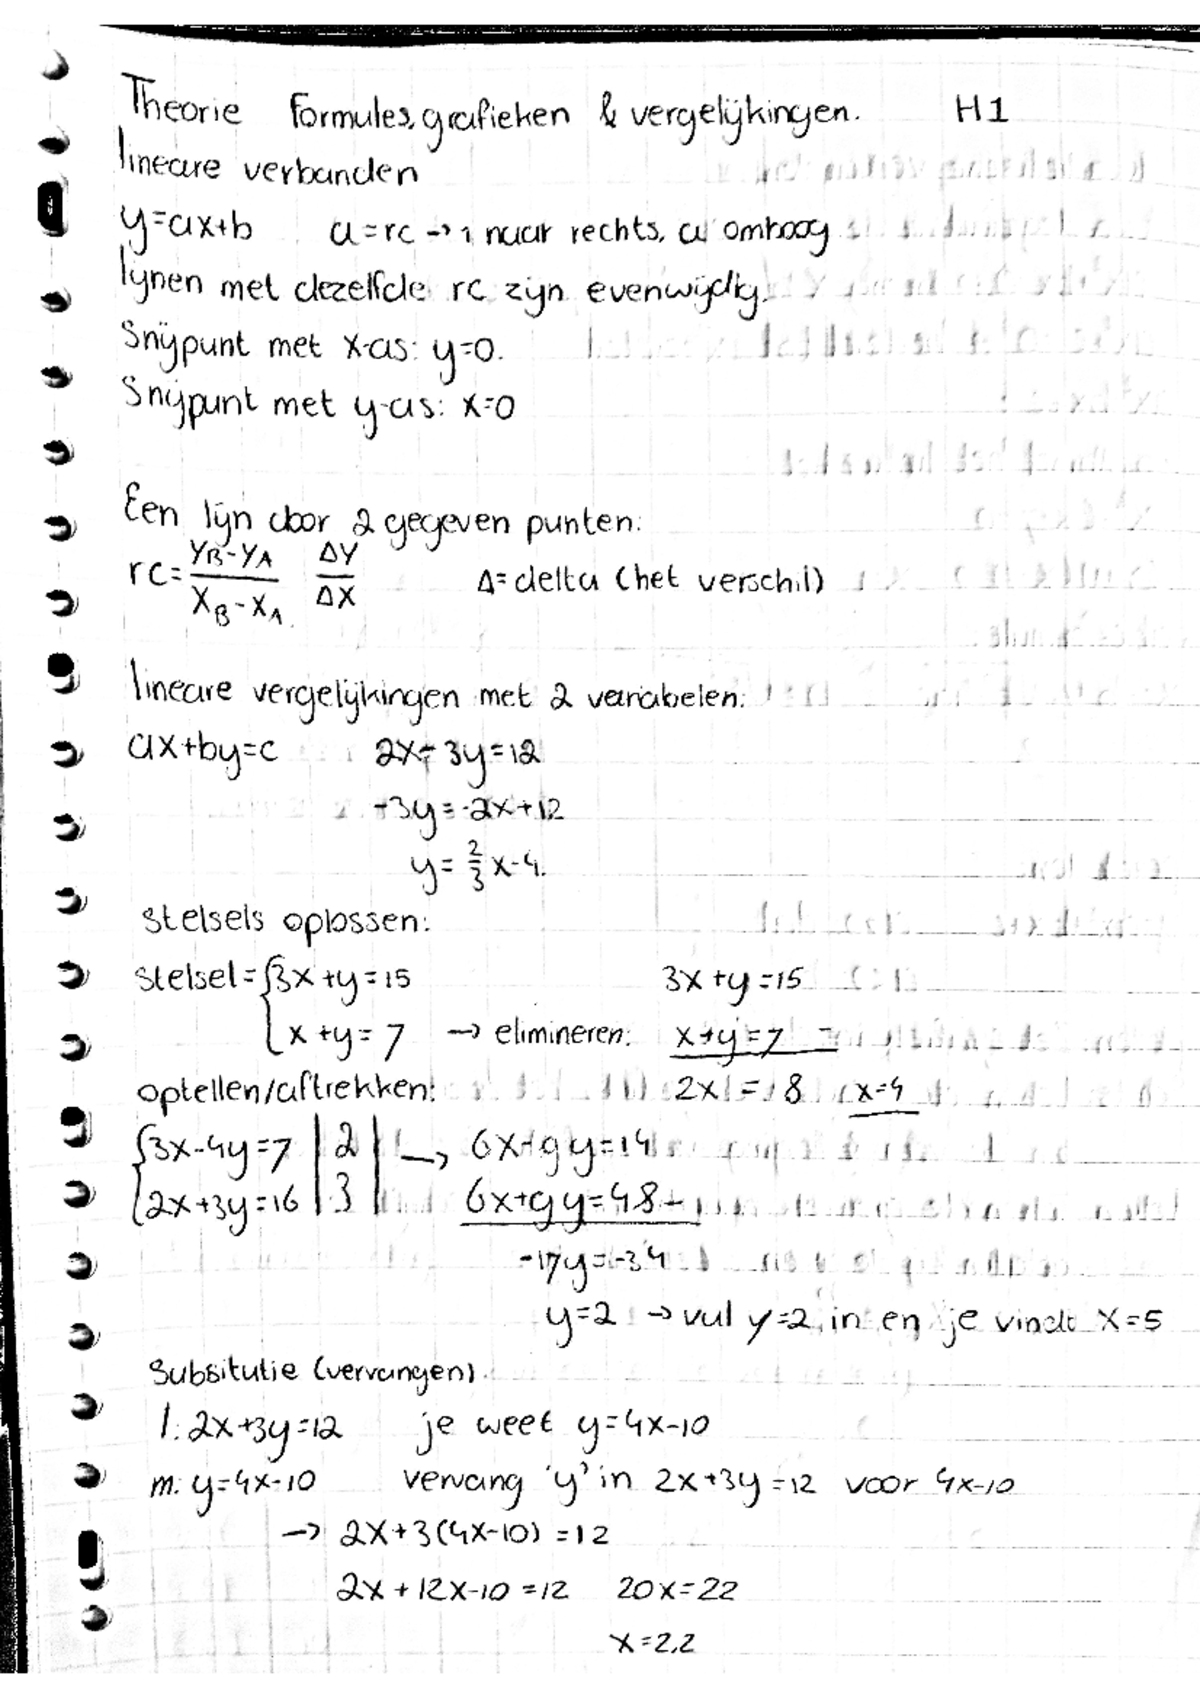 Theorie Formules, grafieken & vergelijkingen. H1
lineare verbanden
y=ax+b a=rc → 1 naar rechts, a omhoog
lijnen met dezelfde rc zijn evenwijdig.
Snijpunt met x-as: y=0.
Snijpunt met y-as: x=0
Een lijn door 2 gegeven punten:
rc= (yB-yA)/(xB-xA) Δy/Δx Δ=delta (het verschil)
lineare vergelijkingen met 2 variabelen:
ax+by=c 2x-3y=12
-3y=-2x+12
y=2/3x-4.
stelsels oplossen:
stelsel={3x+y=15 3x+y=15
x+y=7 → elimineren: x+y=7 -
optellen/aftrekken: 2x=8 x=4
{3x-4y=7 |2| → 6x+gy=14
2x+3y=16 |3| 6x+gy=48-
-17y=-34
y=2 → vul y=2 in en je vindt x=5
Subsitutie (vervangen)
l: 2x+3y=12 je weet y=4x-10
m: y=4x-10 vervang 'y' in 2x+3y=12 voor 4x-10
→ 2x+3(4x-10)=12
2x+12x-10=12 20x=22
x=2,2